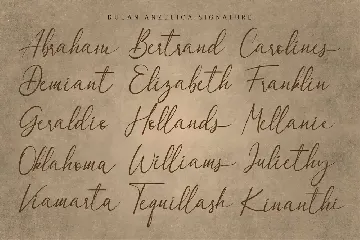 BULAN ANZELICA SIGNATURE
Abraham Bertrand Carolines
Demiant Elizabeth Franklin
Geraldio Hollands Mellanie
Oklahoma Williams Juliethy
Viamarta Tequillash Kinanthi